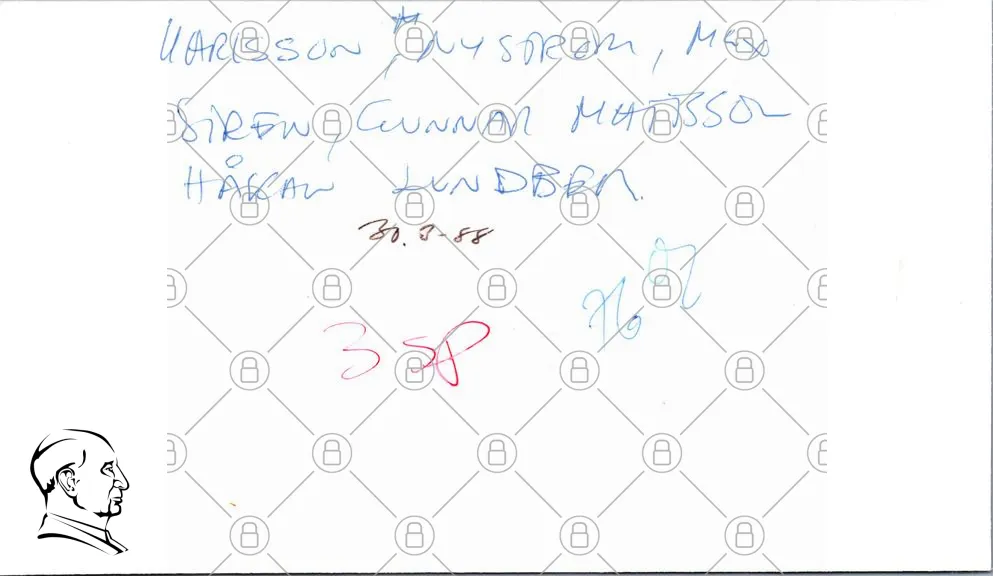 KARLSSON, NYSTRÖM, MAX
SIREN, GUNNAR MATTSSON
HÅKAN LUNDBERG.
30.3-88
3 SP